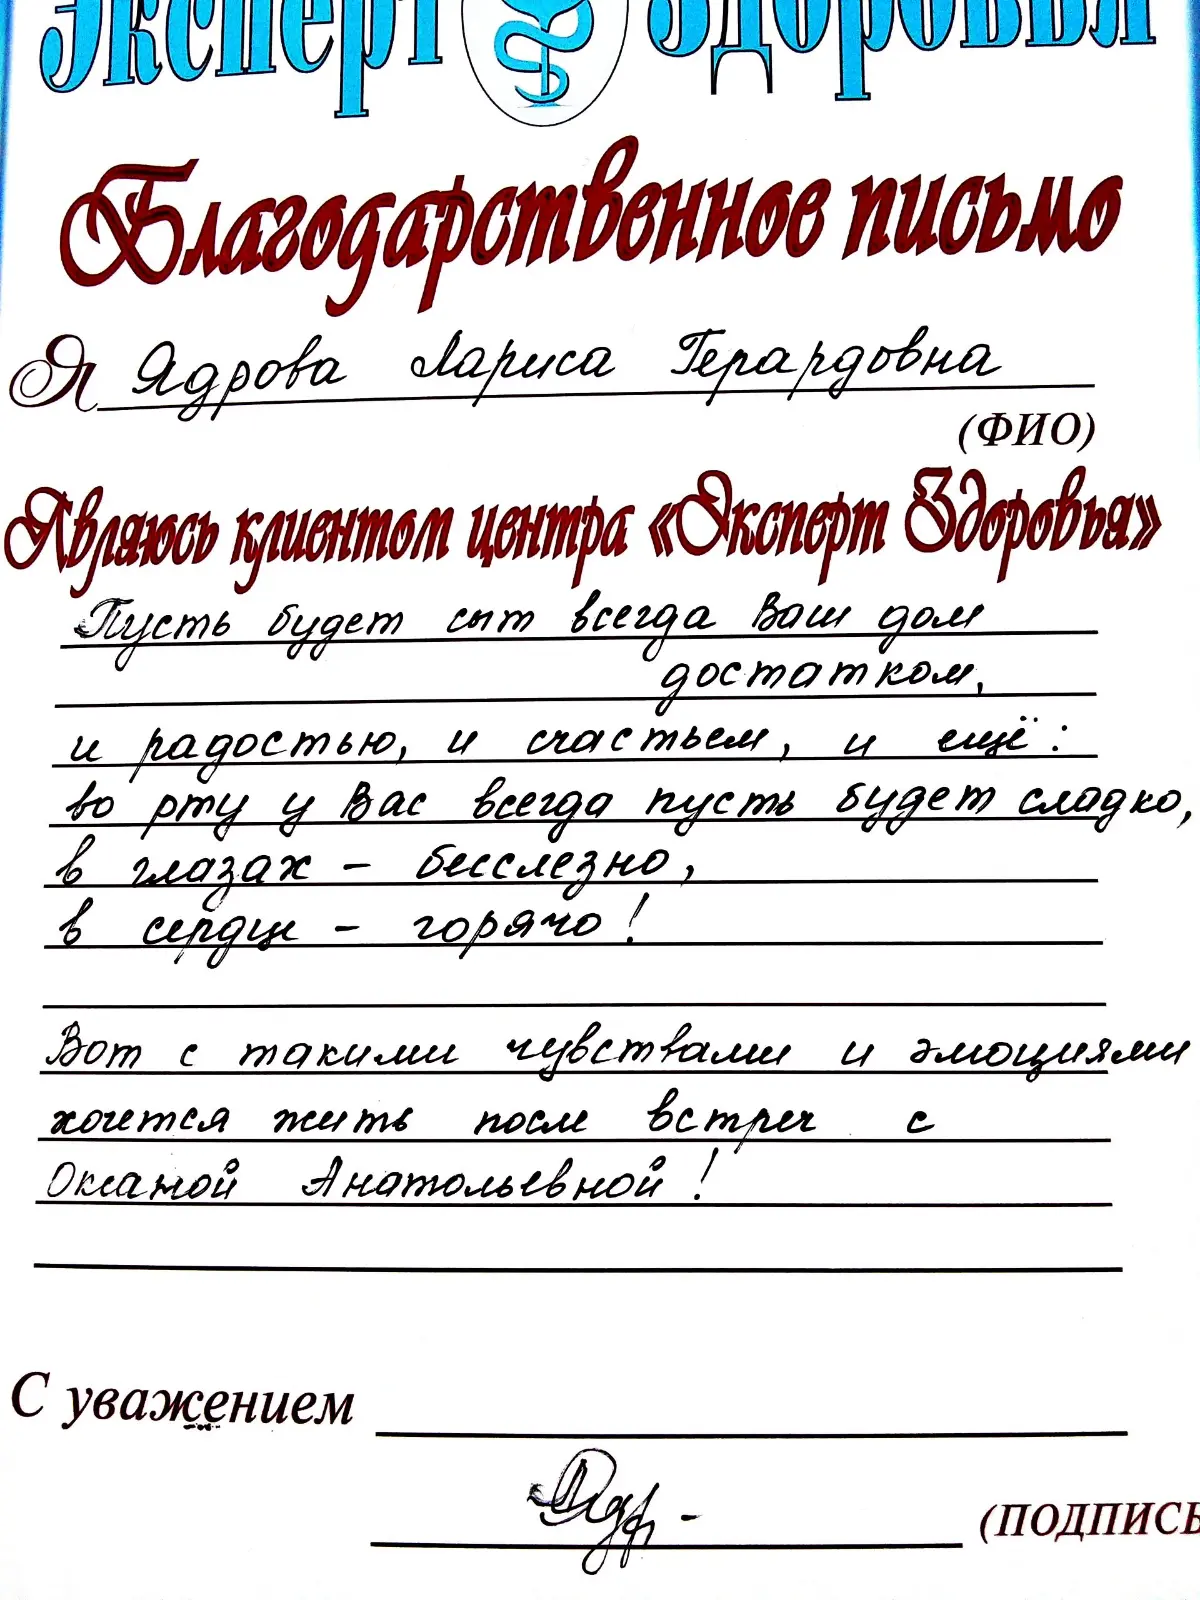 Эксперт Здоровья
Благодарственное письмо
Я Ядрова Лариса Герардовна
(ФИО)
Являюсь клиентом центра «Эксперт Здоровья»
Пусть будет сыт всегда Ваш дом
достатком,
и радостью, и счастьем, и ещё:
во рту у Вас всегда пусть будет сладко,
в глазах - бесслезно,
в сердце - горячо!
Вот с такими чувствами и эмоциями
хочется жить после встреч с
Оксаной Анатольевной!
С уважением
Ядр-
(ПОДПИСЬ